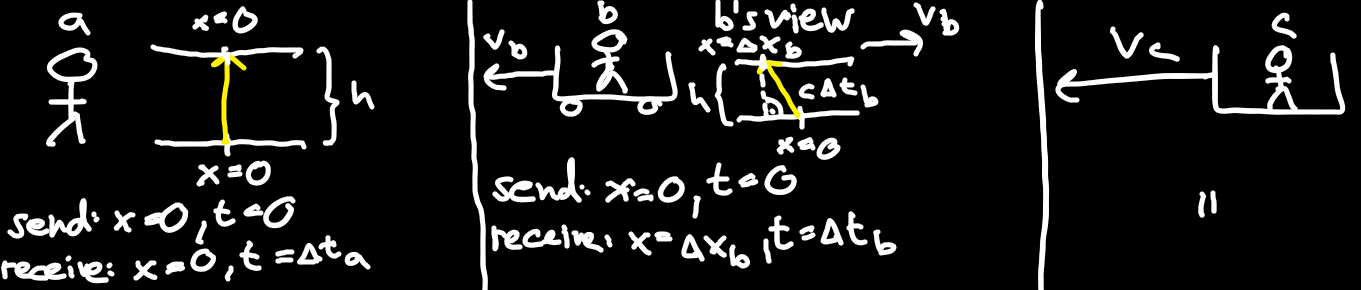 a
x=0
h
x=0
send: x=0, t=0
receive: x=0, t=Δta
b
Vb
b's view
x=Δxb
Vb
h
cΔtb
x=0
send: x=0, t=0
receive: x=Δxb, t=Δtb
c
Vc
"